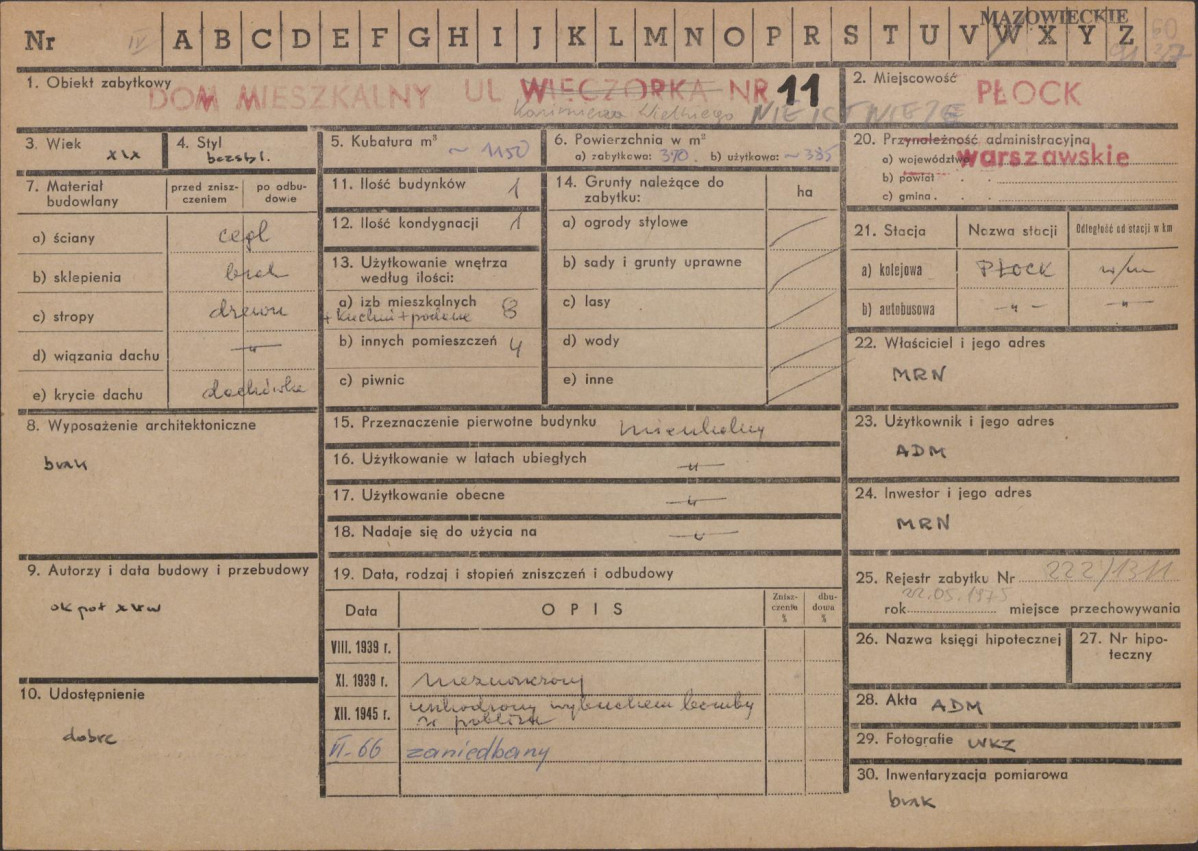 MAZOWIECKIE
Nr IV A B C D E F G H I J K L M N O P R S T U V W X Y Z
1. Obiekt zabytkowy
DOM MIESZKALNY UL WIECZORKA NR 11
Kazimierza Wielkiego NIE ISTNIEJE
2. Miejscowość
PŁOCK
3. Wiek
XIX
4. Styl
bezstyl.
5. Kubatura m³
~ 1150
6. Powierzchnia w m²
a) zabytkowa: 370. b) użytkowa: ~ 335
20. Przynależność administracyjna
a) województwo warszawskie
b) powiat
c) gmina
7. Materiał budowlany
przed znisz-
czeniem
po odbu-
dowie
a) ściany cegł
b) sklepienia brak
c) stropy drewn
d) wiązania dachu —"—
e) krycie dachu dachówka
11. Ilość budynków 1
12. Ilość kondygnacji 1
13. Użytkowanie wnętrza
według ilości:
a) izb mieszkalnych 8
+ kuchni +
b) innych pomieszczeń 4
c) piwnic
14. Grunty należące do
zabytku:
ha
a) ogrody stylowe
b) sady i grunty uprawne
c) lasy
d) wody
e) inne
21. Stacja
Nazwa stacji
Odległość od stacji w km
a) kolejowa PŁOCK w/m
b) autobusowa —"— —"—
22. Właściciel i jego adres
MRN
8. Wyposażenie architektoniczne
brak
15. Przeznaczenie pierwotne budynku mieszkalny
16. Użytkowanie w latach ubiegłych —"—
17. Użytkowanie obecne —"—
18. Nadaje się do użycia na —"—
23. Użytkownik i jego adres
ADM
24. Inwestor i jego adres
MRN
9. Autorzy i data budowy i przebudowy
ok poł w
19. Data, rodzaj i stopień zniszczeń i odbudowy
Data
OPIS
Znisz-
czenia
%
dbu-
dowa
%
VIII. 1939 r.
XI. 1939 r. niezniszczony
XII. 1945 r. uszkodzony wybuchem bomby
w pobliżu
VI-66 zaniedbany
10. Udostępnienie
dobre
25. Rejestr zabytku Nr 222/1311
22.05.1975
rok miejsce przechowywania
26. Nazwa księgi hipotecznej
27. Nr hipo-
teczny
28. Akta ADM
29. Fotografie WKZ
30. Inwentaryzacja pomiarowa
brak